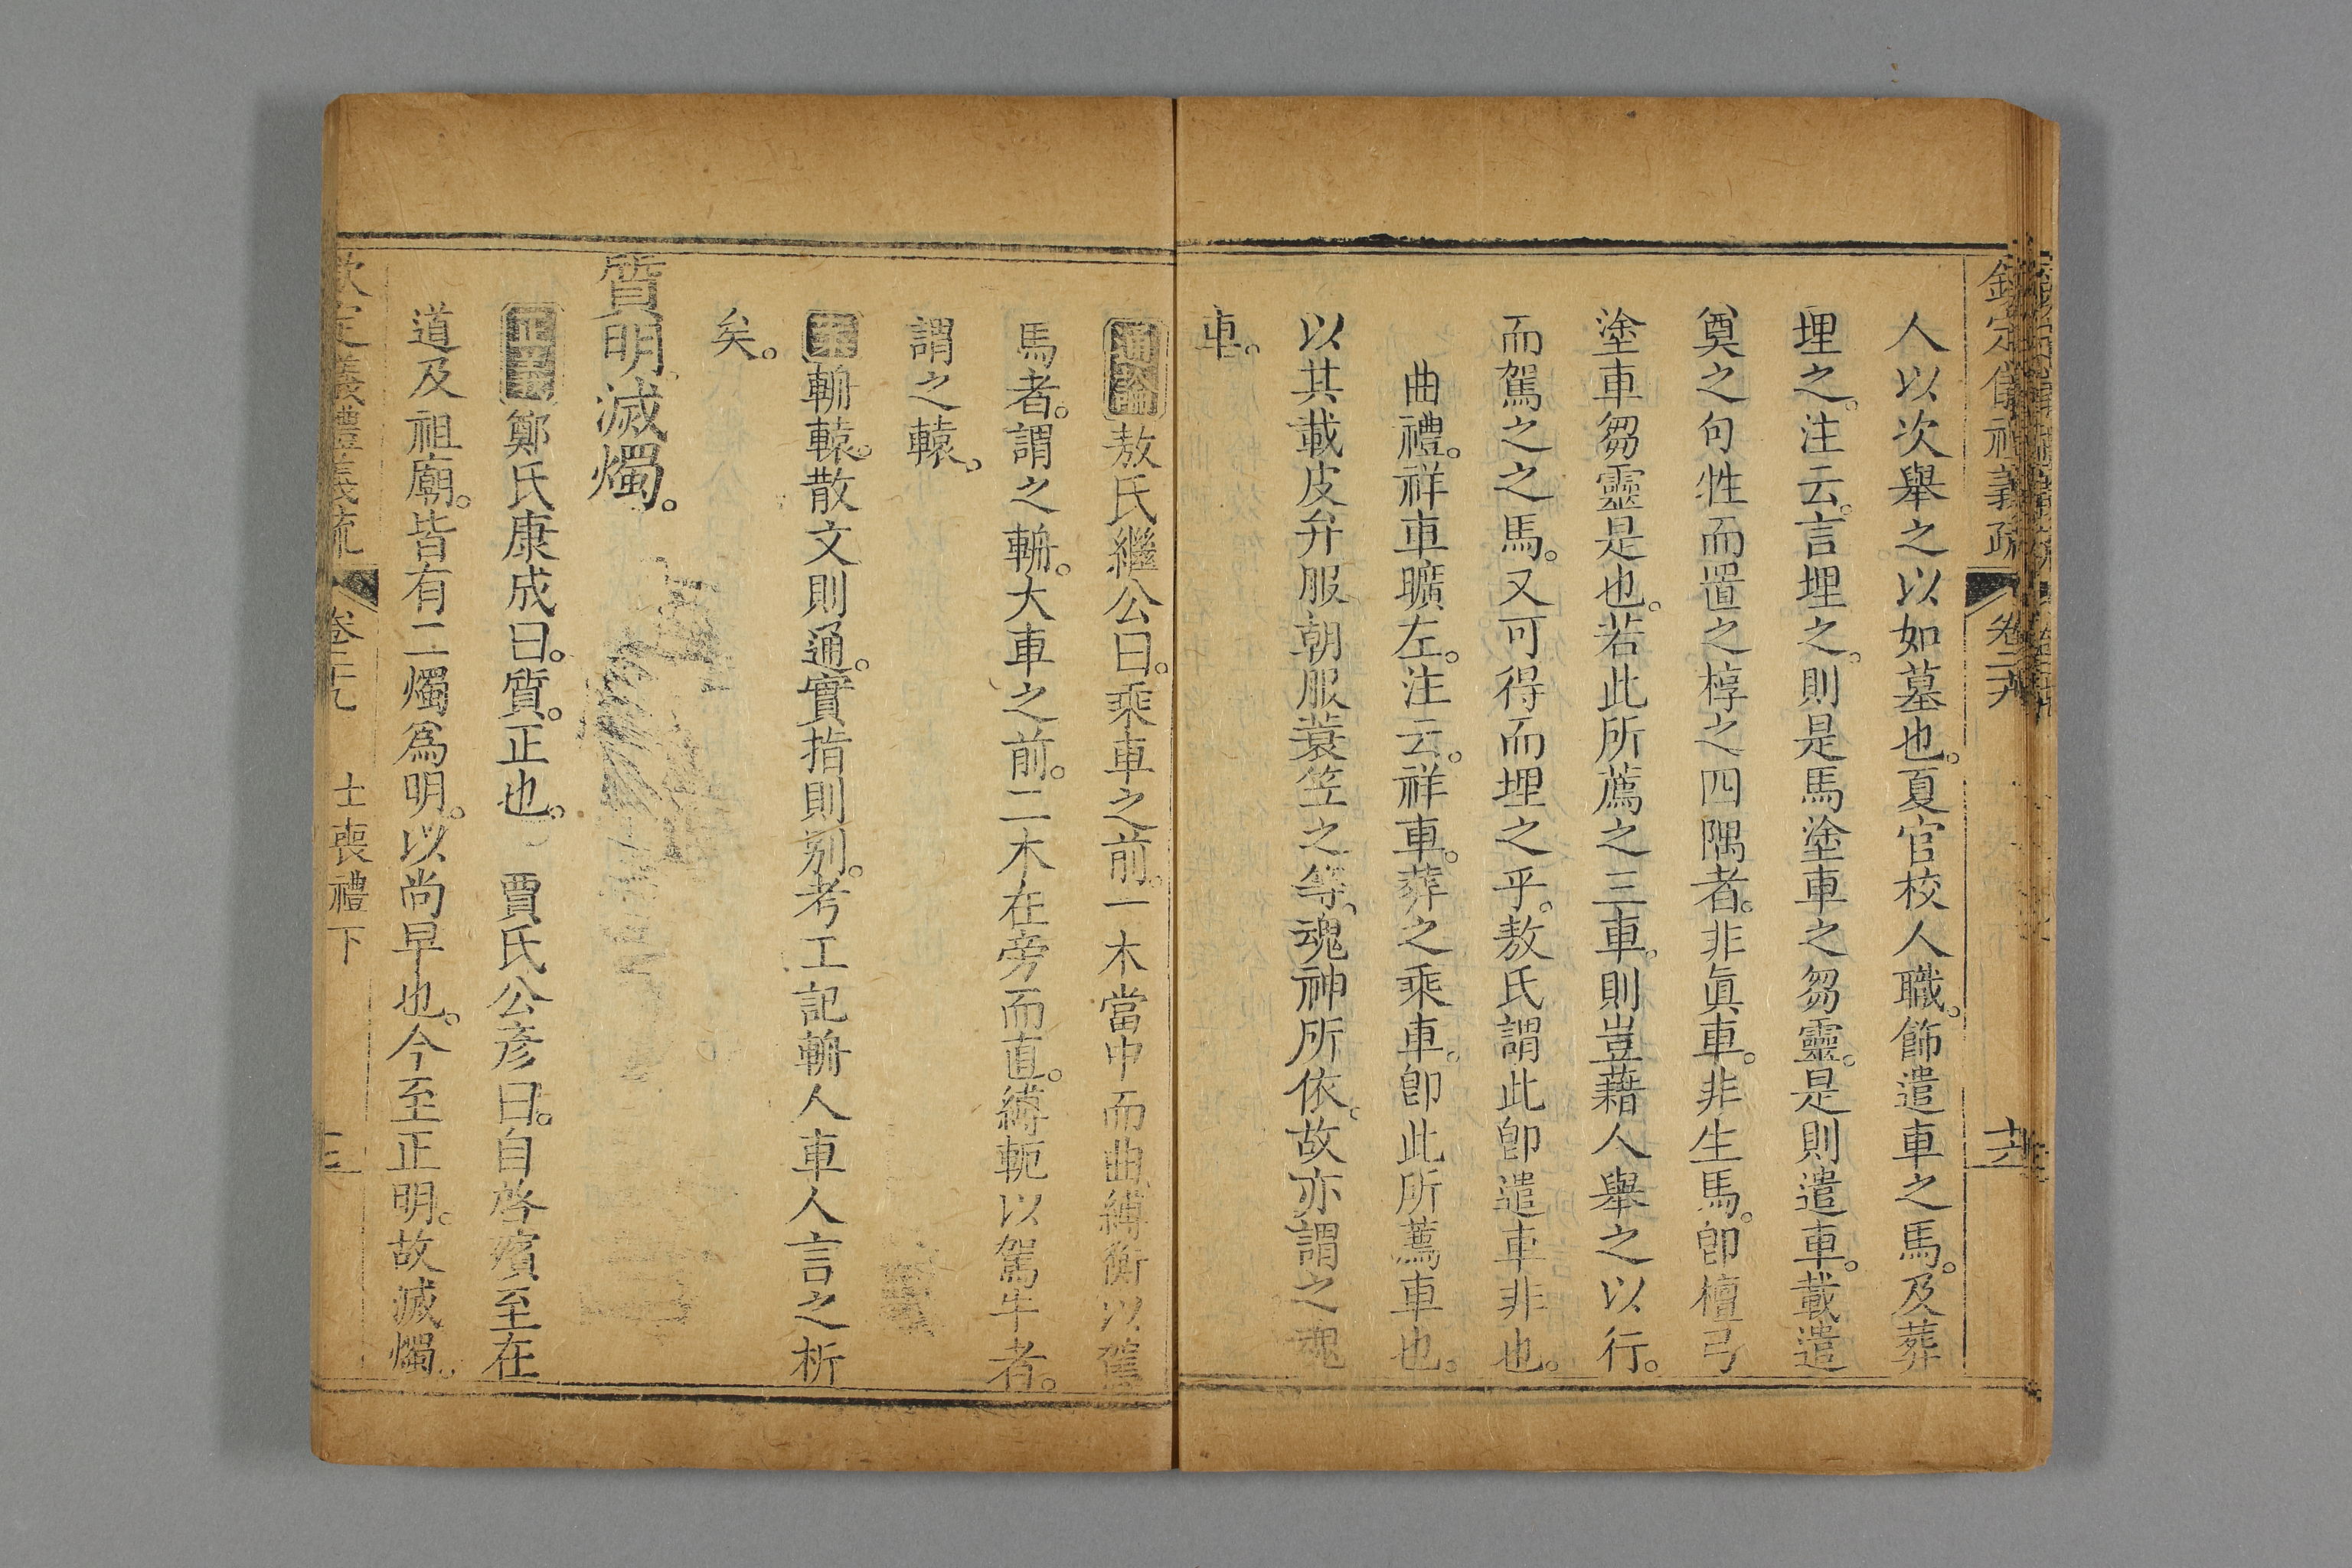 欽定儀禮義疏 卷二十九
人以次舉之以如墓也。夏官校人職。飾遣車之馬。及葬
埋之。注云。言埋之。則是馬塗車之芻靈。是則遣車。載遣
奠之句牲而置之椁之四隅者。非眞車。非生馬。卽檀弓
塗車芻靈是也。若此所薦之三車。則豈藉人舉之以行。
而駕之之馬。又可得而埋之乎。敖氏謂此卽遣車非也。
曲禮。祥車曠左。注云。祥車。葬之乘車。卽此所薦車也。
以其載皮弁服朝服蓑笠之等、魂神所依。故亦謂之魂
車。
通論敖氏繼公曰。乘車之前。一木當中而曲縛衡以駕
馬者。謂之輈。大車之前。二木在旁而直。縛軛以駕牛者。
謂之轅。
案輈轅。散文則通。實指則别。考工記輈人車人言之析
矣。
質明滅燭。
正義鄭氏康成曰。質。正也。 賈氏公彥曰。自啓殯至在
道及祖廟。皆有二燭爲明。以尚早也。今至正明。故滅燭。
欽定儀禮義疏 卷二十九 士喪禮下